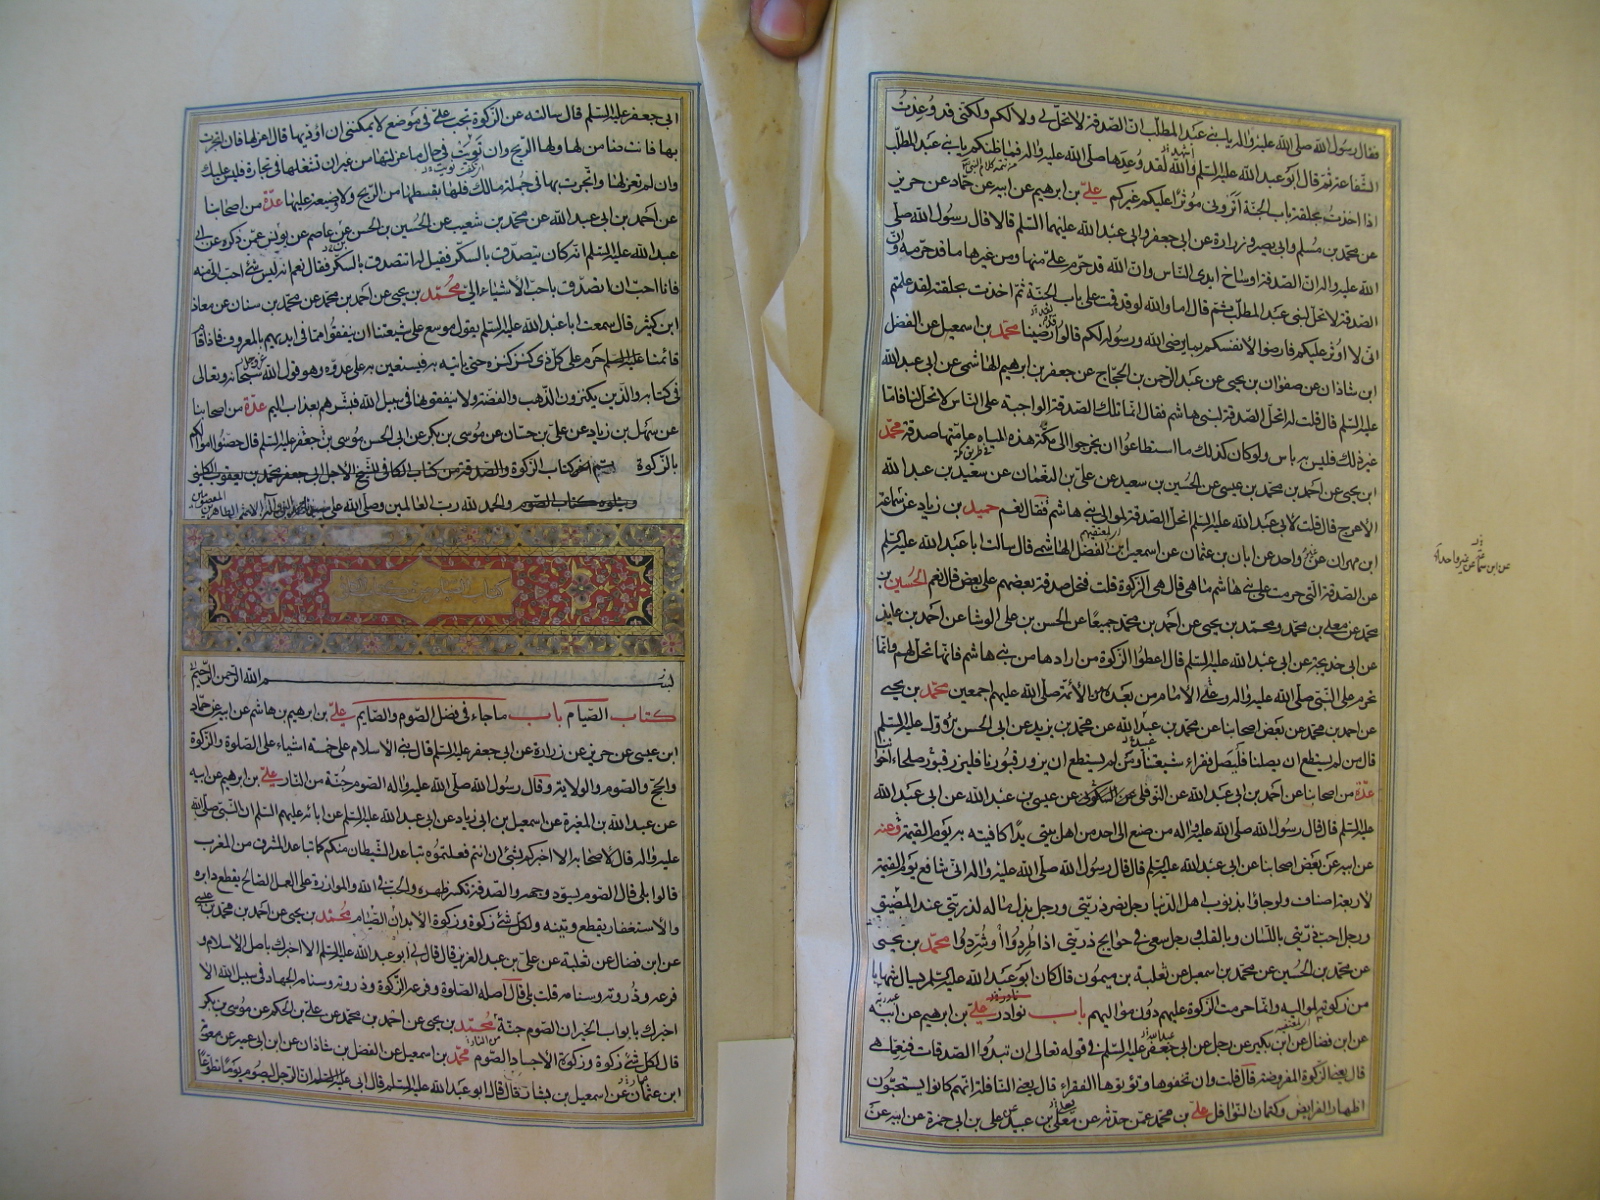 فقال رسول الله صلى الله عليه واله يا بني عبد المطلب ان الصدقة لا تحل لي ولا لكم ولكني قد وعدت
الشفاعة ثم قال ابو عبد الله عليه السلم والله لقد وعدها صلى الله عليه واله فما ظنكم يا بني عبد المطلب
اذا اخذت بحلقة باب الجنة اتروني موثرا عليكم غيركم علي بن ابرهيم عن ابيه عن حماد عن حريز
عن محمد بن مسلم وابي بصير وزرارة عن ابي جعفر وابي عبد الله عليهما السلم قالا قال رسول الله صلى
الله عليه واله ان الصدقة اوساخ ايدي الناس وان الله قد حرم علي منها ومن غيرها ما قد حرمه وان
الصدقة لا تحل لبني عبد المطلب ثم قال اما والله لو قد قمت على باب الجنة ثم اخذت بحلقته لقد علمتم
اني لا اوثر عليكم فارضوا لانفسكم بما رضي الله ورسوله لكم قالوا رضينا محمد بن اسمعيل عن الفضل
ابن شاذان عن صفوان بن يحيى عن عبد الرحمن بن الحجاج عن جعفر بن ابرهيم الهاشمي عن ابي عبد الله
عليه السلم قال قلت له اتحل الصدقة لبني هاشم فقال انما تلك الصدقة الواجبة على الناس لا تحل لنا فاما
غير ذلك فليس به باس ولو كان كذلك ما استطاعوا ان يخرجوا الى مكة هذه المياه عامتها صدقة محمد
ابن يحيى عن احمد بن محمد بن عيسى عن الحسين بن سعيد عن علي بن النعمان عن سعيد بن عبد الله
الاعرج قال قلت لابي عبد الله عليه السلم اتحل الصدقة لموالي بني هاشم فقال نعم حميد بن زياد عن سماعة
ابن مهران عن غير واحد عن ابان بن عثمان عن اسمعيل بن الفضل الهاشمي قال سالت ابا عبد الله عليه السلم
عن الصدقة التي حرمت على بني هاشم ما هي قال هي الزكوة قلت فتحل صدقة بعضهم على بعض قال نعم الحسين بن
محمد عن معلى بن محمد ومحمد بن يحيى عن احمد بن محمد جميعا عن الحسن بن علي الوشا عن احمد بن عايذ
عن ابي خديجة عن ابي عبد الله عليه السلم قال اعطوا الزكوة من ارادها من بني هاشم فانها تحل لهم وانما
تحرم على النبي صلى الله عليه واله وعلى الامام من بعده من الائمة صلى الله عليهم اجمعين محمد بن يحيى
عن احمد بن محمد عن بعض اصحابنا عن محمد بن عبد الله عن محمد بن يزيد عن ابي الحسن عليه السلم
قال من لم يستطع ان يصلنا فليصل فقراء شيعتنا ومن لم يستطع ان يزور قبورنا فليزر قبور صلحاء اخواننا
عدة من اصحابنا عن احمد بن ابي عبد الله عن النوفلي عن عيسى بن عبد الله عن ابي عبد الله
عليه السلم قال قال رسول الله صلى الله عليه واله من صنع الى احد من اهل بيتي يدا كافيته به يوم القيمة وعنه
عن ابيه عن بعض اصحابنا عن ابي عبد الله عليه السلم قال قال رسول الله صلى الله عليه واله اني شافع يوم القيمة
لاربعة اصناف ولو جاؤا بذنوب اهل الدنيا رجل نصر ذريتي ورجل بذل ماله لذريتي عند المضيق
ورجل احب ذريتي باللسان وبالقلب ورجل سعى في حوايج ذريتي اذا طردوا او شردوا محمد بن يحيى
عن محمد بن الحسين عن محمد بن اسمعيل عن ثعلبة بن ميمون قال كان ابو عبد الله عليه السلم يسال شهابا
من زكوته لمواليه وانما حرمت الزكوة عليهم دون مواليهم باب نوادر علي بن ابرهيم عن ابيه
عن ابن فضال عن ابن بكير عن رجل عن ابي جعفر عليه السلم في قوله تعالى ان تبدوا الصدقات فنعما هي
قال يعني الزكوة المفروضة قال قلت وان تخفوها وتؤتوها الفقراء قال يعني النافلة انهم كانوا يستحبون
اظهار الفرايض وكتمان النوافل علي بن محمد عمن حدثه عن معلى بن عبيد عن علي بن ابي حمزة عن ابيه عن
عن ابن سماعة عن غير واحد
ابي جعفر عليه السلم قال سالته عن الزكوة تجب علي في موضع لا يمكنني ان اؤديها قال اعزلها فان اتجرت
بها فانت ضامن لها ولها الربح وان تويت في حال ما عزلتها من غير ان تشغلها في تجارة فليس عليك
وان لم تعزلها واتجرت بها في جملة مالك فلها بقسطها من الربح ولا وضيعة عليها عدة من اصحابنا
عن احمد بن ابي عبد الله عن محمد بن شعيب عن الحسين بن الحسن عن عاصم عن يونس عمن ذكره عن ابي
عبد الله عليه السلم انه كان يتصدق بالسكر فقيل له اتتصدق بالسكر فقال نعم انه ليس شئ احب الي منه
فانا احب ان اتصدق باحب الاشياء الي محمد بن يحيى عن احمد بن محمد عن محمد بن سنان عن معاذ
ابن كثير قال سمعت ابا عبد الله عليه السلم يقول موسع على شيعتنا ان ينفقوا مما في ايديهم بالمعروف فاذا قام
قائمنا عليه السلم حرم على كل ذي كنز كنزه حتى ياتيه به فيستعين به على عدوه وهو قول الله سبحانه وتعالى
في كتابه والذين يكنزون الذهب والفضة ولا ينفقونها في سبيل الله فبشرهم بعذاب اليم عدة من اصحابنا
عن سهل بن زياد عن علي بن حسان عن موسى بن بكر عن ابي الحسن موسى بن جعفر عليه السلم قال حصنوا اموالكم
بالزكوة تم كتاب الزكوة والصدقة من كتاب الكافي للشيخ الاجل ابي جعفر محمد بن يعقوب الكليني
ويتلوه كتاب الصوم والحمد لله رب العالمين وصلى الله على
بسم الله الرحمن الرحيم
كتاب الصيام باب ما جاء في فضل الصوم والصايم علي بن ابرهيم بن هاشم عن ابيه عن حماد
ابن عيسى عن حريز عن زرارة عن ابي جعفر عليه السلم قال بني الاسلام على خمسة اشياء على الصلوة والزكوة
والحج والصوم والولاية وقال رسول الله صلى الله عليه واله الصوم جنة من النار علي بن ابرهيم عن ابيه
عن عبد الله بن المغيرة عن اسمعيل بن ابي زياد عن ابي عبد الله عليه السلم عن ابائه عليهم السلم ان النبي صلى الله
عليه واله قال لاصحابه الا اخبركم بشئ ان انتم فعلتموه تباعد الشيطان منكم كما تباعد المشرق من المغرب
قالوا بلى قال الصوم يسود وجهه والصدقة تكسر ظهره والحب في الله والموازرة على العمل الصالح يقطع دابره
والاستغفار يقطع وتينه ولكل شئ زكوة وزكوة الابدان الصيام محمد بن يحيى عن احمد بن محمد بن عيسى
عن ابن فضال عن ثعلبة عن علي بن عبد العزيز قال قال لي ابو عبد الله عليه السلم الا اخبرك باصل الاسلام و
فرعه وذروته وسنامه قلت بلى قال اصله الصلوة وفرعه الزكوة وذروته وسنامه الجهاد في سبيل الله الا
اخبرك بابواب الخير ان الصوم جنة محمد بن يحيى عن احمد بن محمد عن علي بن الحكم عن موسى بن بكر
قال لكل شئ زكوة وزكوة الاجساد الصوم محمد بن اسمعيل عن الفضل بن شاذان عن ابن ابي عمير عن معوية
ابن عثمان عن اسمعيل بن يسار قال قال ابو عبد الله عليه السلم قال ابي عليه السلم ان الرجل ليصوم يوما تطوعا